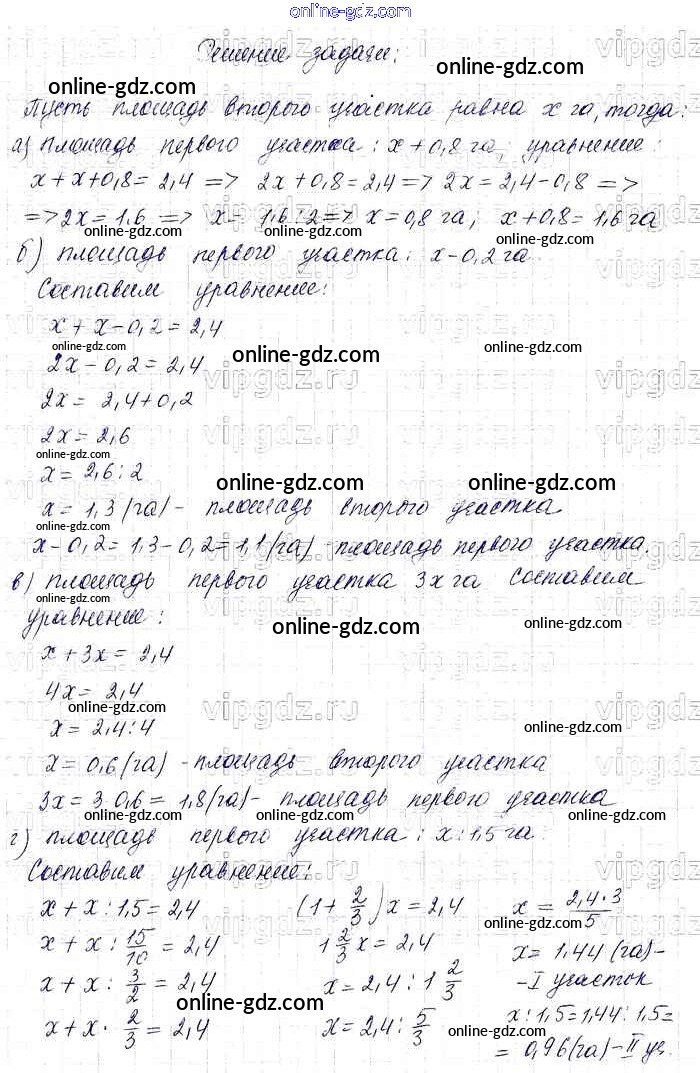 online-gdz.com
Решение задачи:
online-gdz.com
online-gdz.com
Пусть площадь второго участка равна x га, тогда:
online-gdz.com
а) площадь первого участка: x+0,8 га; уравнение:
x+x+0,8=2,4 => 2x+0,8=2,4 => 2x=2,4-0,8 =>
=> 2x=1,6 => x= 1,6:2 => x=0,8 га; x+0,8=1,6 га
online-gdz.com
online-gdz.com
б) площадь первого участка: x-0,2 га
Составим уравнение:
x+x-0,2=2,4
online-gdz.com
online-gdz.com
online-gdz.com
2x-0,2=2,4
2x=2,4+0,2
2x=2,6
online-gdz.com
x=2,6:2
online-gdz.com
online-gdz.com
x=1,3 (га)- площадь второго участка
online-gdz.com
x-0,2=1,3-0,2=1,1 (га) -площадь первого участка.
в) площадь первого участка 3x га Составим
online-gdz.com
уравнение:
online-gdz.com
online-gdz.com
x+3x=2,4
4x=2,4
online-gdz.com
x=2,4:4
online-gdz.com
x=0,6 (га) -площадь второго участка
3x=3 0,6=1,8 (га)- площадь первого участка
online-gdz.com
online-gdz.com
г) площадь первого участка: x:1,5 га
Составим уравнение:
x+x:1,5=2,4
x+x:15/10=2,4
x+x:3/2=2,4
x+x·2/3=2,4
(1+2/3)x=2,4
1 2/3 x=2,4
x=2,4:1 2/3
x=2,4:5/3
x=2,4·3/5
x=1,44 (га)-
-I участок
x:1,5=1,44:1,5=
=0,96 (га)-II уч.
online-gdz.com
online-gdz.com
online-gdz.com
online-gdz.com
vipgdz.ru
vipgdz.ru
vipgdz.ru